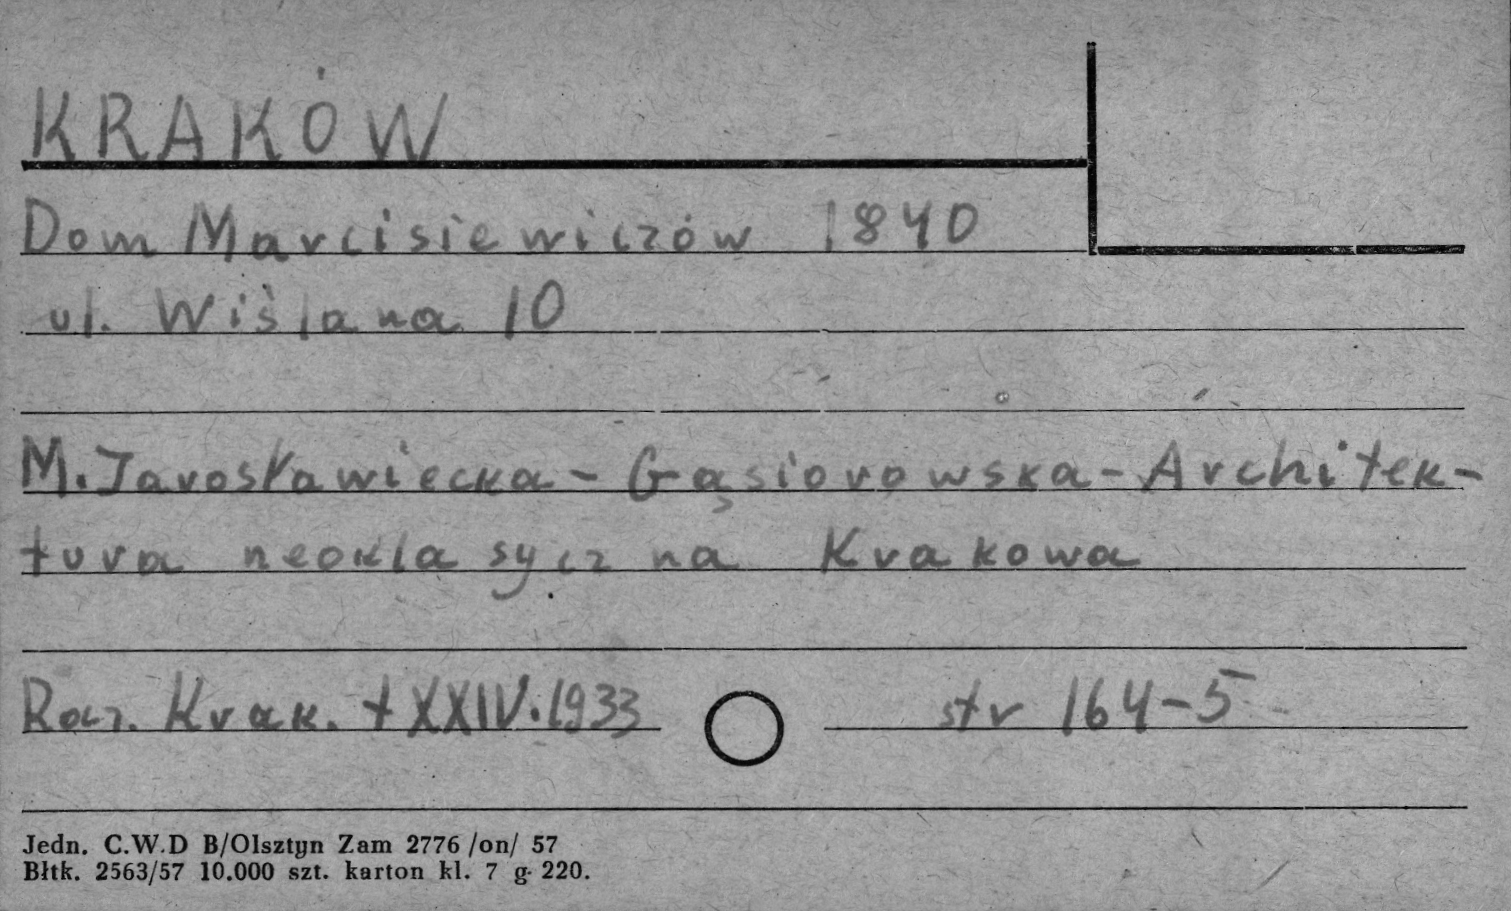 KRAKÓW
Dom Marcisiewiczów 1840
ul. Wiślana 10
M. Jarosławiecka - Gąsiorowska - Architek-
tura neoklasyczna Krakowa
Rocz. Krak. t XXIV. 1933 str 164-5
Jedn. C.W.D B/Olsztyn Zam 2776 /on/ 57
Błtk. 2563/57 10.000 szt. karton kl. 7 g 220.